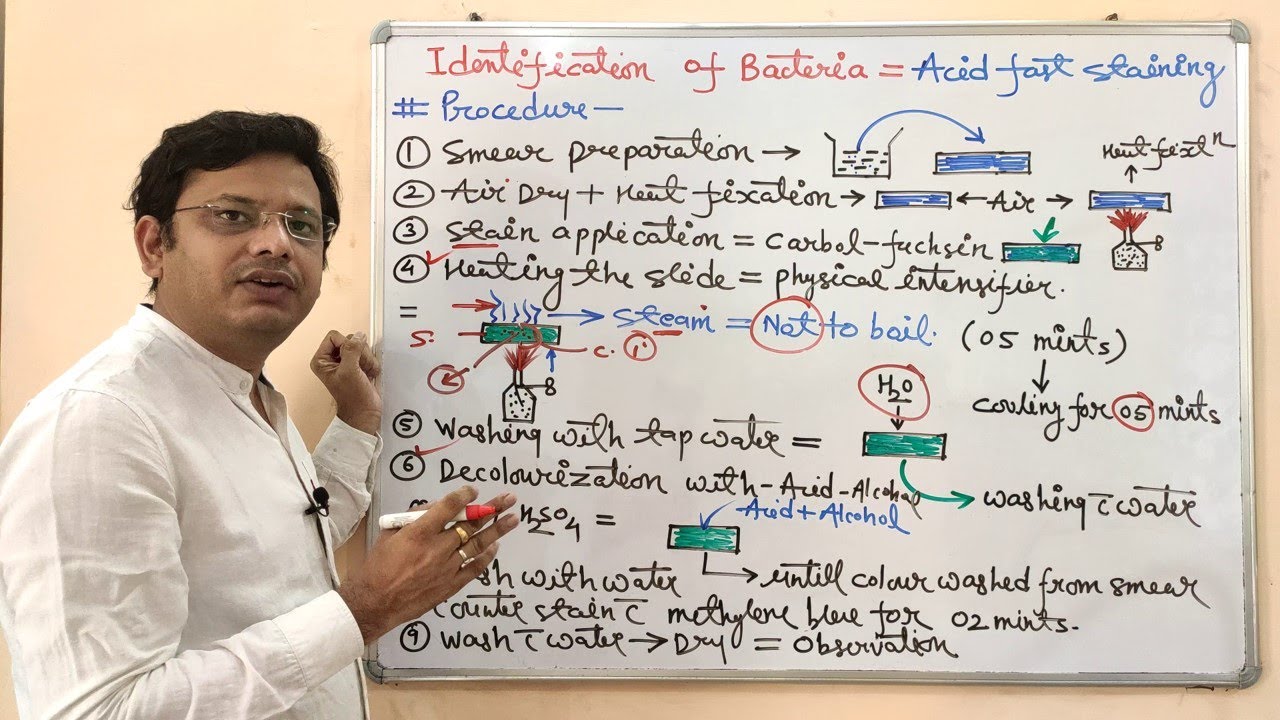 Identification of Bacteria = Acid fast staining
# Procedure —
① Smear preparation →
Heat fixtⁿ
② Air Dry + Heat fixation → ← Air →
③ Stain application = Carbol-fuchsin
B
④ Heating the slide = physical intensifier.
= → steam = Not to boil. (05 mints)
S. C. ①
B
H₂O
cooling for 05 mints
⑤ Washing with tap water =
⑥ Decolourization with - Acid - Alcohol
washing c̄ water
Acid + Alcohol
H₂SO₄ =
with water → untill colour washed from smear
counter stain c̄ methylene blue for 02 mints.
⑨ wash c̄ water → Dry = Observation